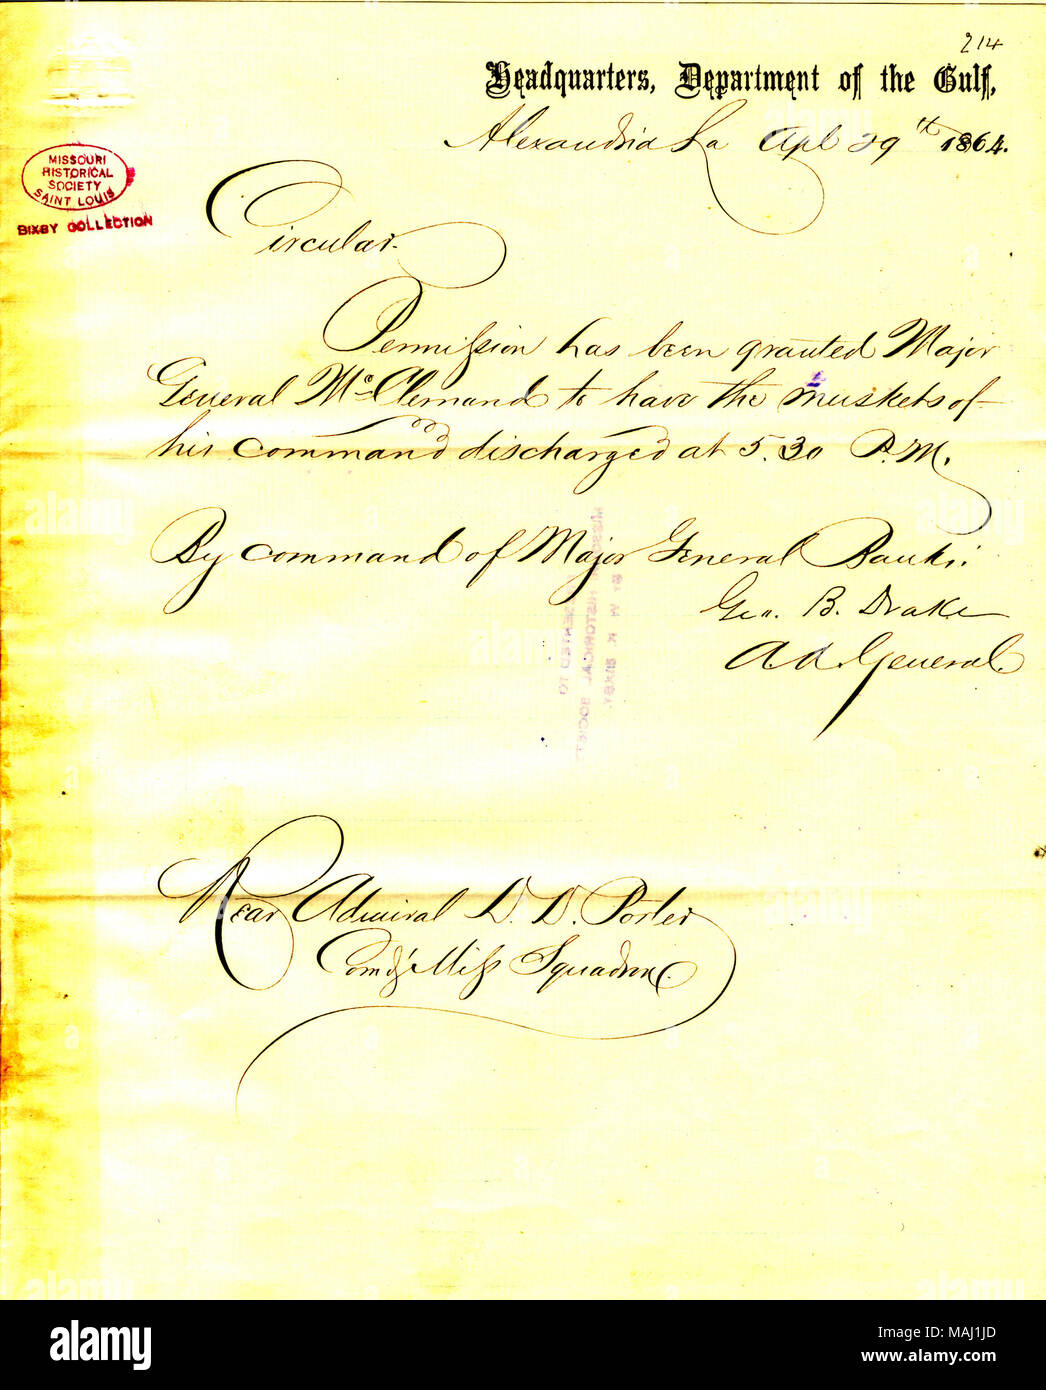 214
Headquarters, Department of the Gulf,
Alexandria La Apl 29th 1864.
MISSOURI
HISTORICAL
SOCIETY
SAINT LOUIS
BIXBY COLLECTION
Circular.
Permission has been granted Major
General McClernand to have the muskets of
his command discharged at 5.30 P.M.
By command of Major General Banks:
Geo. B. Drake
A. A. General.
PRESENTED TO
MISSOURI HISTORICAL SOCIETY
BY W. K. BIXBY.
Rear Admiral D. D. Porter
Comdg Miss Squadron
alamy
Image ID: MAJ1JD
www.alamy.com